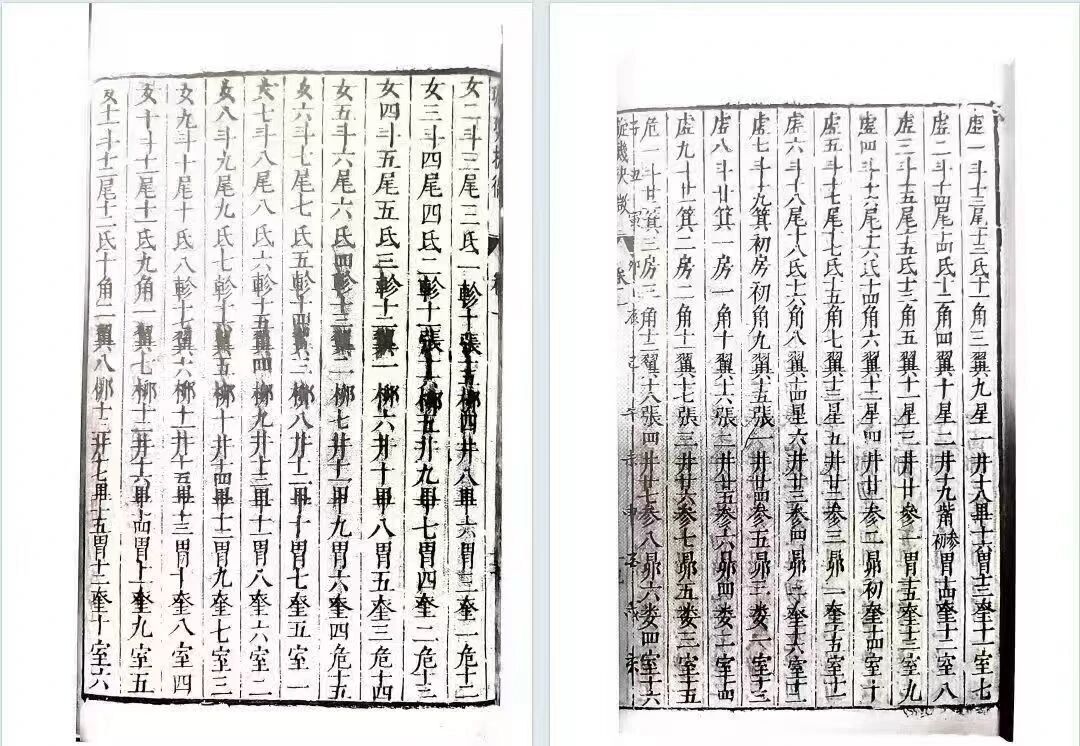 女二斗三尾三氐一軫十張十五柳四井八畢六胃三奎一危十二
女三斗四尾四氐二軫十一張十六柳五井九畢七胃四奎二危十三
女四斗五尾五氐三軫十二翼一柳六井十畢八胃五奎三危十四
女五斗六尾六氐四軫十三翼二柳七井十一畢九胃六奎四危十五
女六斗七尾七氐五軫十四翼三柳八井十二畢十胃七奎五室一
女七斗八尾八氐六軫十五翼四柳九井十三畢十一胃八奎六室二
女八斗九尾九氐七軫十六翼五柳十井十四畢十二胃九奎七室三
女九斗十尾十氐八軫十七翼六柳十一井十五畢十三胃十奎八室四
女十斗十一尾十一氐九角一翼七柳十二井十六畢十四胃十一奎九室五
女十一斗十二尾十二氐十角二翼八柳十三井十七畢十五胃十二奎十室六
虚一斗十三尾十三氐十一角三翼九星一井十八畢十六胃十三奎十一室七
虚二斗十四尾十四氐十二角四翼十星二井十九觜初参胃十四奎十二室八
虚三斗十五尾十五氐十三角五翼十一星三井廿參一胃十五奎十三室九
虚四斗十六尾十六氐十四角六翼十二星四井廿参二昴初奎十四室十
虚五斗十七尾十七氐十五角七翼十三星五井廿二参三昴一奎十五室十一
虚六斗十八尾十八氐十六角八翼十四星六井廿三参四昴二奎十六室十二
虚七斗十九箕初房初角九翼十五張一井廿四参五昴三婁一室十三
虚八斗廿箕一房一角十翼十六張二井廿五参六昴四婁二室十四
虚九斗廿一箕二房二角十一翼十七張三井廿六参七昴五婁三室十五
危一斗廿二箕三房三角十二翼十八張四井廿七参八昴六婁四室十六